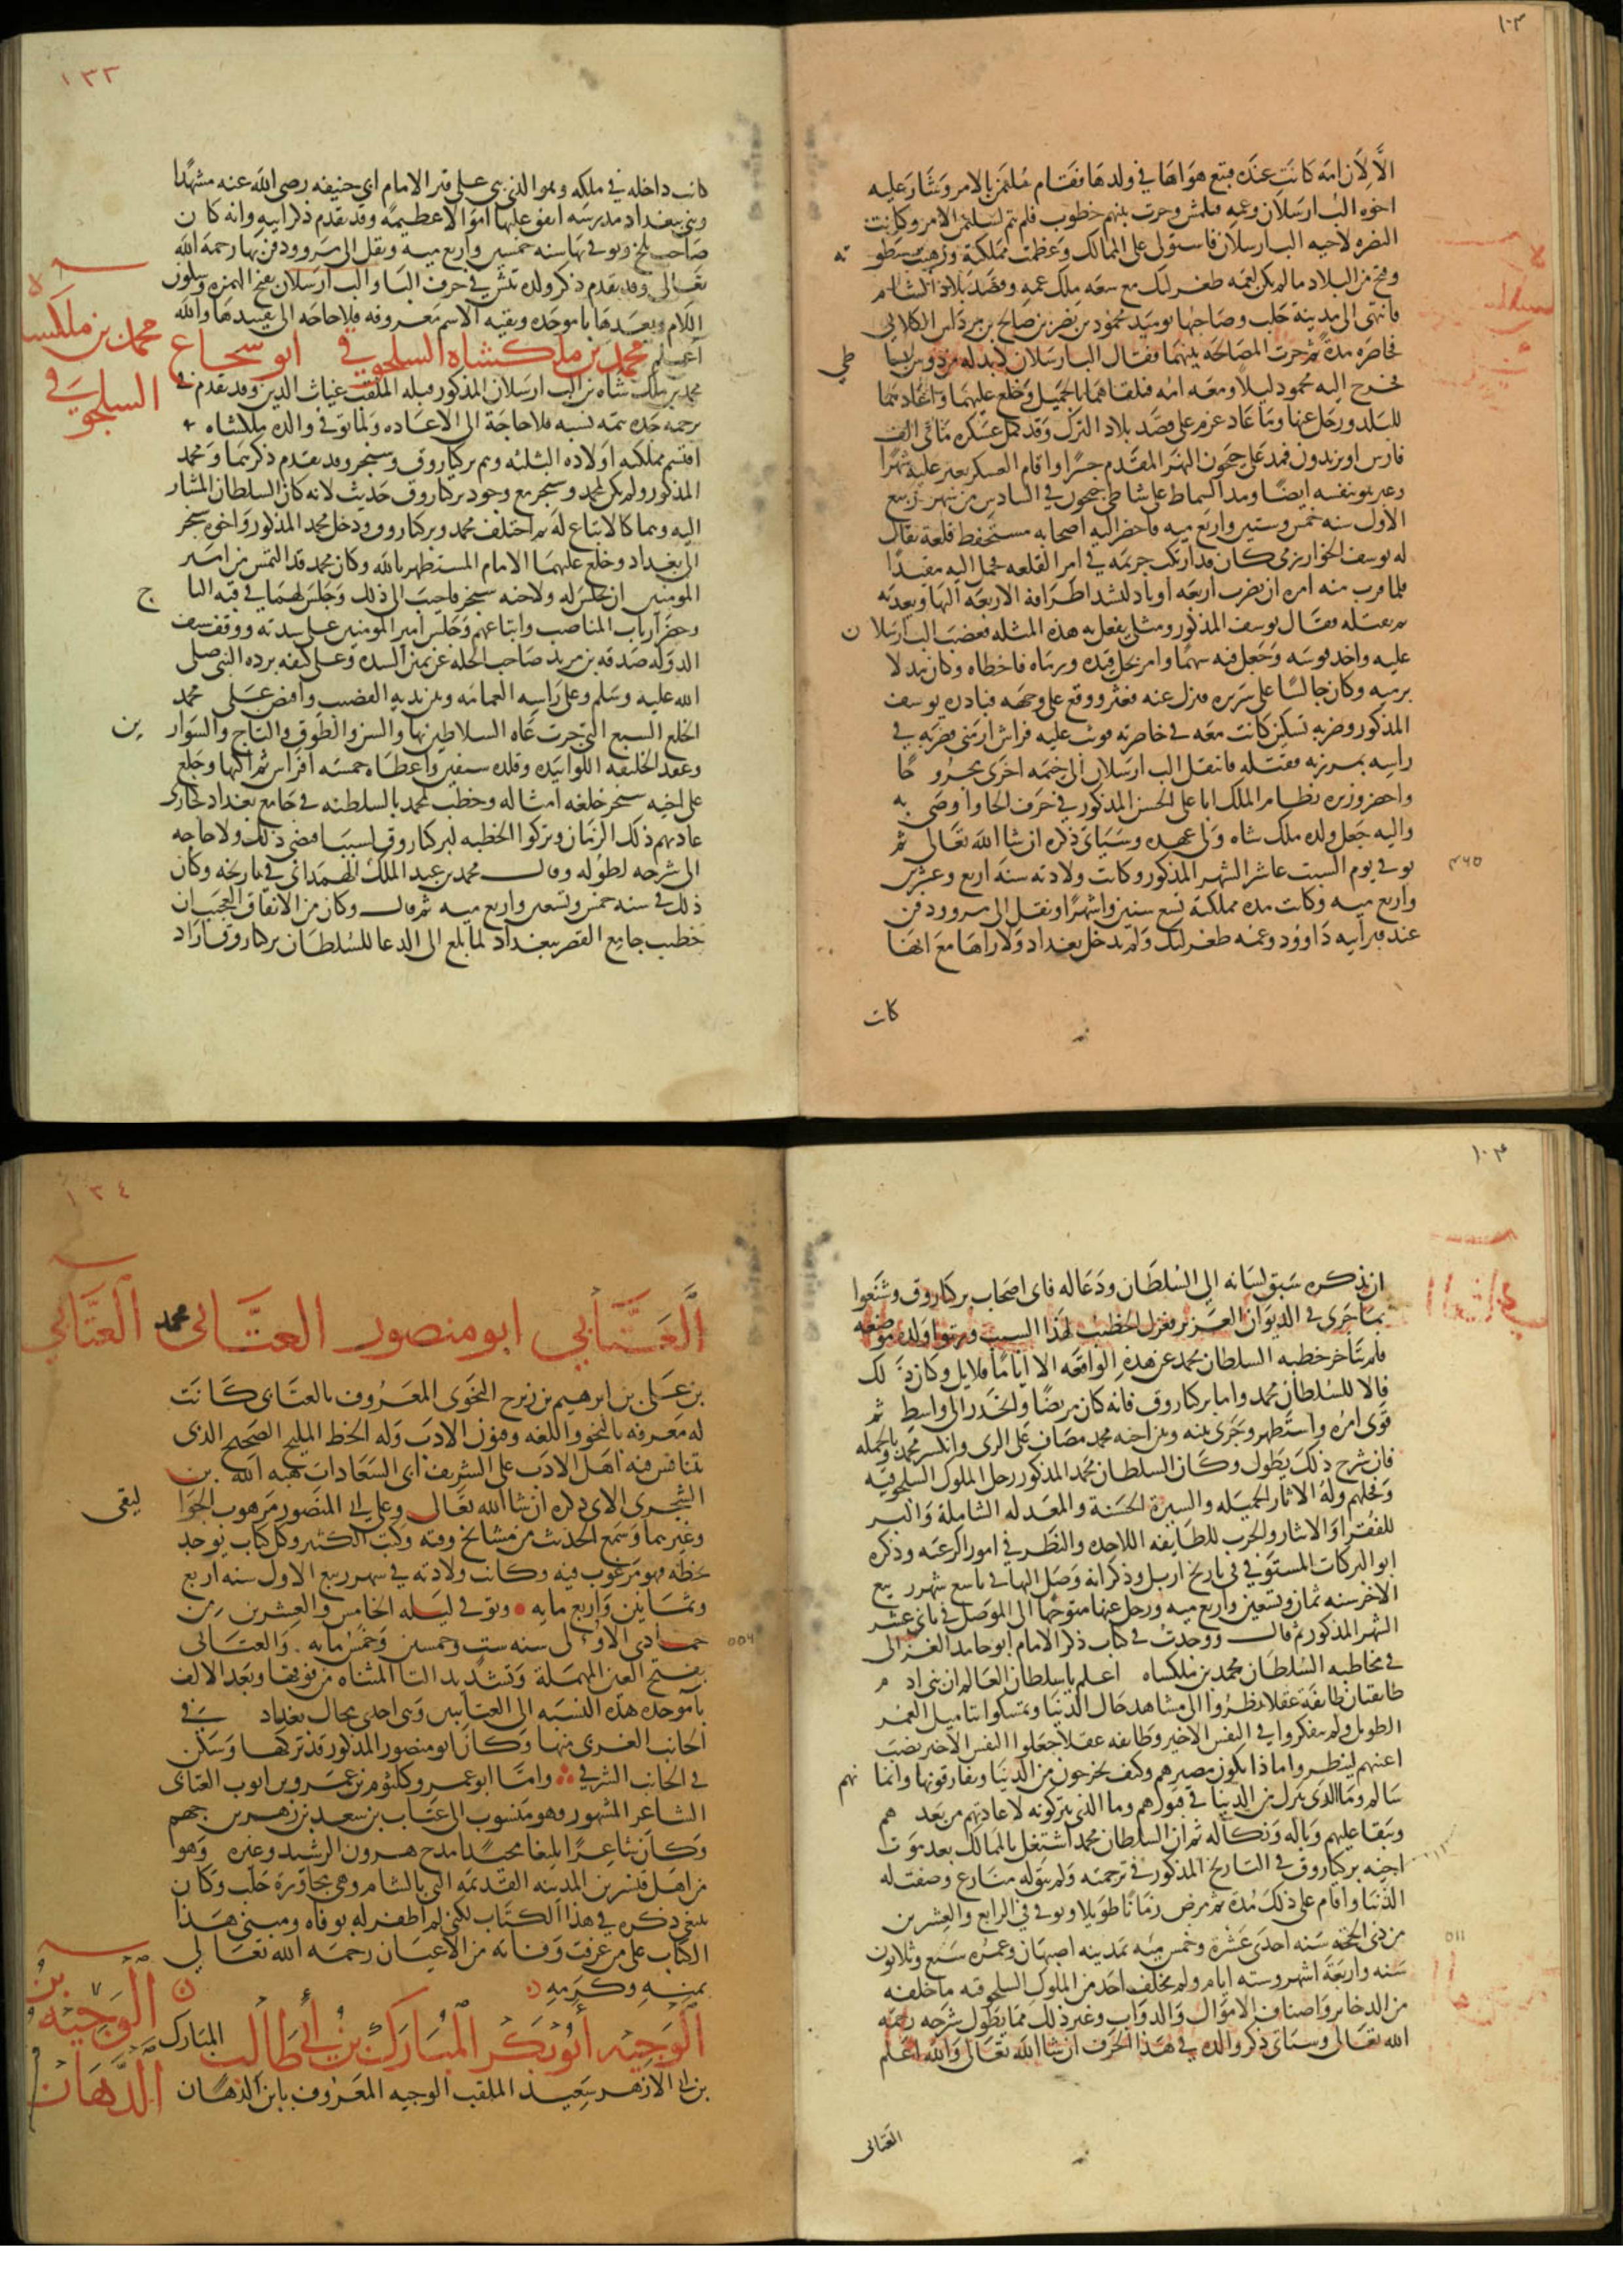 ١٠٣
الا لان امه كانت عنده فتبع هواها في ولدها فقام سليمن بالامر وثار عليه
اخوه الب ارسلان وعمه قتلمش وجرت بينهم خطوب فلم يتم لسليمن الامر وكانت
النصره لاخيه الب ارسلان فاستولى على الممالك وعظمت مملكته ورهبت سطو ته
وفتح من البلاد مالم يكن لعمه طغرلبك مع سعه ملك عمه وقصد بلاد الشام
فانتهى الى مدينة حلب وصاحبها يوميذ محمود بن نصر بن صالح بن مرداس الكلابي
فحاصره مدة ثم جرت المصالحه بينهما فقال الب ارسلان لابد له من دوس بسا طي
فخرج اليه محمود ليلا ومعه امه فتلقاهما بالجميل وخلع عليهما واعادهما
للبلد ورحل عنها ولما عاد عزم على قصد بلاد الترك وقد كمل عسكره مائتي الف
فارس او يزيدون فمد على جيحون النهر المقدم جسرا واقام العسكر يعبر عليه شهرا
وعبر هو بنفسه ايضا ومد السماط على شاطي جيحون في السادس من شهر ربيع
الاول سنه خمس وستين واربع ميه فاحضر اليه اصحابه مستحفظ قلعة يقال
له يوسف الخوارزمي كان قد ارتكب جريمه في امر القلعه فحمل اليه مقيدا
فلما قرب منه امره ان يضرب اربعه اوتاد لتشد اطرافه الاربعه اليها ويعذبه
ثم يقتله فقال يوسف المذكور ومثلي يفعل به هذه المثله فغضب الب ارسلا ن
عليه واخذ قوسه وجعل فيه سهما وامر بحل قيده ورماه فاخطاه وكان مدلا
برميه وكان جالسا على سريره فنزل عنه فعثر ووقع على وجهه فبادره يوسف
المذكور وضربه بسكين كانت معه في خاصرته فوثب عليه فراش ارمني فضربه في
راسه بمرزبه فقتله فانتقل الب ارسلان الى خيمه اخرى مجرو حا
واحضر وزيره نظام الملك ابا علي الحسن المذكور في حرف الحا واوصى به
واليه جعل ولده ملك شاه ولي عهده وسياتي ذكره ان شا الله تعالى ثم
توفي يوم السبت عاشر الشهر المذكور وكانت ولادته سنه اربع وعشرين
٤٦٥
واربع ميه وكانت مده مملكته تسع سنين واشهرا ونقل الى مرو ودفن
عند قبر ابيه داوود وعمه طغرلبك ولم يدخل بغداد ولا راها مع انها
كانت
١٣٣
كانت داخله في ملكه وهو الذي بنى على قبر الامام ابي حنيفه رضي الله عنه مشهدا
وبنى ببغداد مدرسه انفق عليها اموالا عظيمه وقد تقدم ذكر ابيه وانه كان
صاحب بلخ وتوفي بها سنه خمسين واربع ميه ونقل الى مرو ودفن بها رحمه الله
تعالى وقد تقدم ذكر ولده تتش في حرف التا والب ارسلان بفتح الهمزه وسكون
اللام وبعدها با موحده وبقيه الاسم معروفه فلا حاجه الى تقييدها والله
اعلم محمد بن ملكشاه السلجوقي ابو شجاع
محمد بن ملكسا ه
السلجوقي
محمد بن ملك شاه بن الب ارسلان المذكور قبله الملقب غياث الدين وقد تقدم في
ترجمه جده تتمه نسبه فلا حاجة الى الاعاده ولما توفي والده ملكشاه
اقتسم مملكته اولاده الثلثه وهم بركياروق وسنجر وقد تقدم ذكرهما ومحمد
المذكور ولم يكن لمحمد وسنجر مع وجود بركياروق حديث لانه كان السلطان المشار
اليه وهما كالاتباع له ثم اختلف محمد وبركياروق ودخل محمد المذكور واخوه سنجر
الى بغداد وخلع عليهما الامام المستظهر بالله وكان محمد قد التمس من امير
المومنين ان يجلس له ولاخيه سنجر فاجيب الى ذلك وجلس لهما في قبه التا ج
وحضر ارباب المناصب واتباعهم وجلس امير المومنين على سدته ووقف سيف
الدوله صدقه بن مزيد صاحب الحله عن يمين السده وعلى كتفه برده النبي صلى
الله عليه وسلم وعلى راسه العمامه وبين يديه القضيب وافيض على محمد
الخلع السبع التي جرت عاده السلاطين بها والبس الطوق والتاج والسوار ين
وعقد الخليفه اللوا بيده وقلده سيفين واعطاه خمسه افراس بمراكبها وخلع
على اخيه سنجر خلعه امثاله وخطب لمحمد بالسلطنه في جامع بغداد كجاري
عادتهم ذلك الزمان وتركوا الخطبه لبركياروق لسبب اقتضى ذلك ولا حاجه
الى شرحه لطوله وقال محمد بن عبد الملك الهمداني في تاريخه وكان
ذلك في سنه خمس وتسعين واربع ميه ثم قال وكان من الاتفاق العجيب ان
خطيب جامع القصر ببغداد لما بلغ الى الدعا للسلطان بركياروق فاراد
١٠٤
ان يذكره سبق لسانه الى السلطان ودعا له فاتى اصحاب بركياروق وشنعوا
بما جرى في الديوان العزيز فعزل الخطيب لهذا السبب ورتبوا ولده موضعه
فلم يتاخر خطبه السلطان محمد عن هذه الواقعه الا اياما قلايل وكان ذ لك
فالا للسلطان محمد واما بركياروق فانه كان مريضا وانحدر الى واسط ثم
قوى امره واستظهر وجرى بينه وبين اخيه محمد مصاف على الري وانكسر محمد وبالجمله
فان شرح ذلك يطول وكان السلطان محمد المذكور رجل الملوك السلجوقيه
وفحلهم وله الاثار الجميله والسيرة الحسنة والمعدله الشاملة والبر
للفقرا والايثار والحرب للطايفه الملاحده والنظر في امور الرعيه وذكره
ابو البركات المستوفي في تاريخ اربل وذكر انه وصل اليها في تاسع شهر ربيع
الاخر سنه ثمان وتسعين واربع ميه ورحل عنها متوجها الى الموصل في ثاني عشر
الشهر المذكور ثم قال ووجدت في كتاب ذكر الامام ابو حامد الغزالي
في مخاطبه السلطان محمد بن ملكساه اعلم يا سلطان العالم ان بني اد م
طايفتان طايفة عقلا نظروا الى مشاهد حال الدنيا وتمسكوا بتاميل العمر
الطويل ولم يتفكروا في النفس الاخير وطايفه عقلا جعلوا النفس الاخير نصب
اعينهم لينظروا ماذا يكون مصيرهم وكيف يخرجون من الدنيا ويفارقونها وايما نهم
سالم وما الذي ينزل من الدينا في قبورهم وما الذي يتركونه لاعاديهم من بعد هم
ويبقا عليهم وباله ونكاله ثم ان السلطان محمد اشتغل بالممالك بعد مو ت
اخيه بركياروق في التاريخ المذكور في ترجمته ولم يبق له منازع وصفت له
الدنيا واقام على ذلك مدة ثم مرض زمانا طويلا وتوفي في الرابع والعشرين
من ذي الحجة سنه احدى عشرة وخمس ميه بمدينه اصبهان وعمره سبع وثلاثون
٥١١
سنه واربعة اشهر وسته ايام ولم يخلف احد من الملوك السلجوقيه ما خلفه
من الدخاير واصناف الاموال والدواب وغير ذلك مما يطول شرحه رحمه
الله تعالى وسياتي ذكر والده في هذا الحرف ان شا الله تعالى والله اعلم
العتابى
١٣٤
العتابي ابو منصور العتابى محمد
العتابي
بن علي بن ابرهيم بن زبرج النحوي المعروف بالعتابي كانت
له معرفه بالنحو واللغه وفنون الادب وله الخط المليح الصحيح الذي
يتنافس فيه اهل الادب على الشريف ابي السعادات هبه الله بن
الشجري الاتي ذكره ان شا الله تعالى وعلى ابي المنصور موهوب الجوا ليقي
وغيرهما وسمع الحديث من مشايخ وقته وكتب الكثير وكل كتاب يوجد
بخطه فهو مرغوب فيه وكانت ولادته في شهر ربيع الاول سنه اربع
وثمانين واربع مايه وتوفي ليله الخامس والعشرين من
جمادى الاولى سنه ست وخمسين وخمس مايه . والعتابى
٥٥٦
بفتح العين المهملة وتشديد التا المثناه من فوقها وبعد الالف
با موحده هذه النسبه الى العتابيين وهي احدى محال بغداد في
الجانب الغربي منها وكان ابو منصور المذكور قد تركها وسكن
في الجانب الشرقي واما ابو عمرو كلثوم بن عمرو بن ايوب العتابى
الشاعر المشهور وهو منسوب الى عتاب بن سعد بن زهير بن جهم
وكان شاعرا بليغا مجيدا مدح هرون الرشيد وغيره وهوا
من اهل قنسرين المدينه القديمه التي بالشام وهي مجاورة حلب وكان
ينبغي ذكره في هذا الكتاب لكني لم اظفر له بوفاه ومبنى هذا
الكتاب على من عرفت وفاته من الاعيان رحمه الله تعالي
بمنه وكرمه
الوجيه أبو بكر المبارك بن أبي طالب المبارك
الوجيه بن
الدهان
بن ابي الازهر سعيد الملقب الوجيه المعروف بابن الدهان